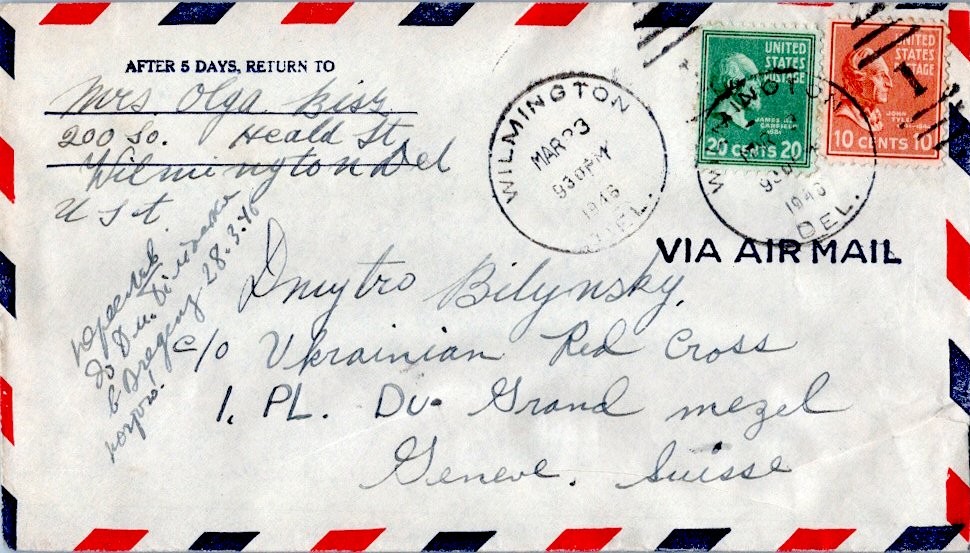 AFTER 5 DAYS, RETURN TO
Mrs Olga
200 So. Heald St,
Wilmington Del
U S A
WILMINGTON
MAR 23
930 PM
1946
DEL.
UNITED
STATES
POSTAGE
JAMES A.
GARFIELD
20 CENTS 20
UNITED
STATES
POSTAGE
JOHN
TYLER
10 CENTS 10
1
WILMINGTON
930
1946
DEL.
VIA AIR MAIL
Dmytro Bilynsky,
c/o Ukrainian Red Cross
1, PL. Du. Grand mezel
Geneve. Suisse
до Дм.
в Bregenz 28.3.46